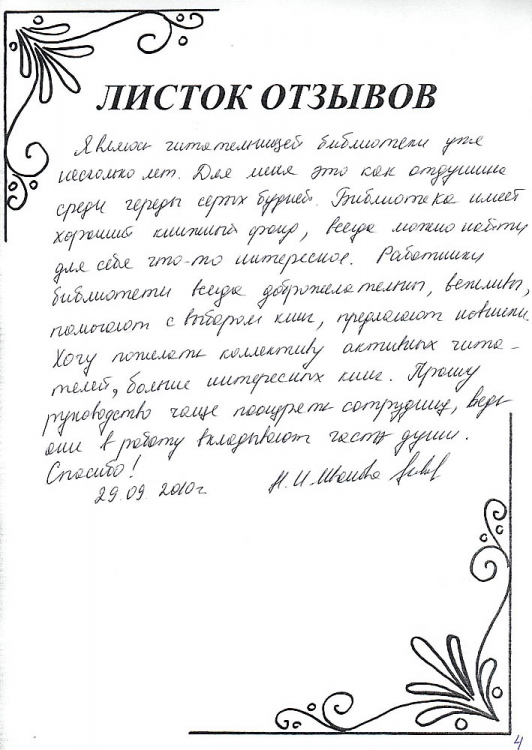 ЛИСТОК ОТЗЫВОВ
Являюсь читательницей библиотеки уже
несколько лет. Для меня это как отдушина
среди череды серых будней. Библиотека имеет
хороший книжный фонд, всегда можно найти
для себя что-то интересное. Работники
библиотеки всегда доброжелательны, вежливы,
помогают с выбором книг, предлагают новинки.
Хочу пожелать коллективу активных чита-
телей, больше интересных книг. Прошу
руководство чаще поощрять сотрудниц, ведь
они в работу вкладывают часть души.
Спасибо!
29.09.2010г. Н.И. Иванова
4